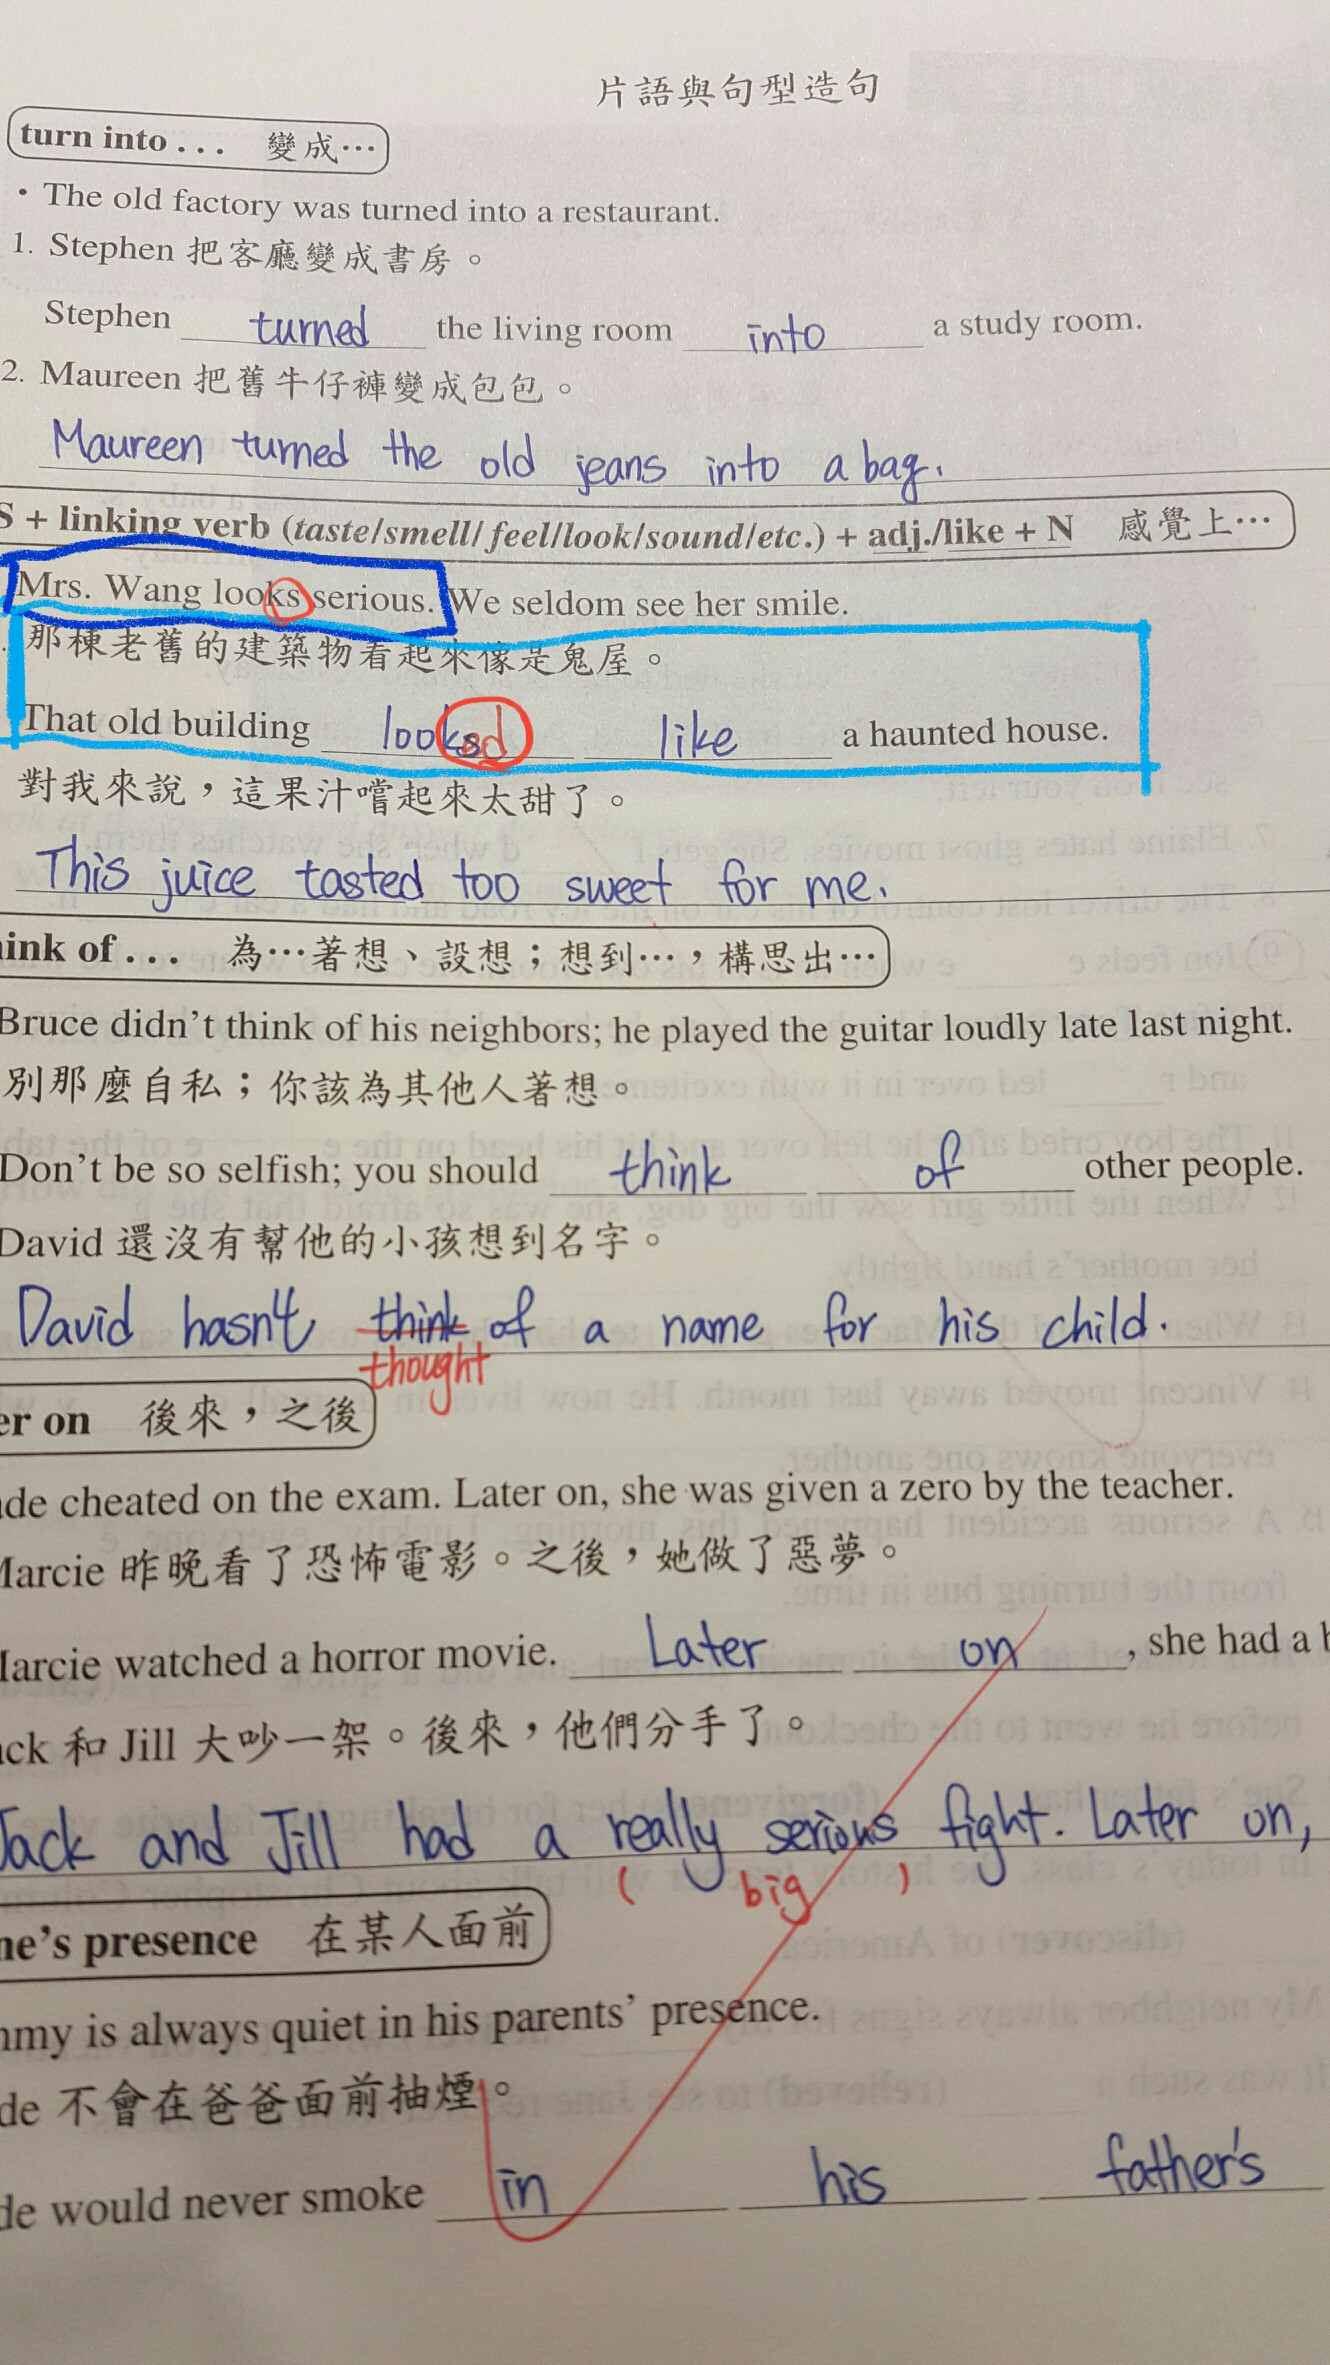 片語與句型造句
turn into . . . 變成…
• The old factory was turned into a restaurant.
1. Stephen 把客廳變成書房。
Stephen turned the living room into a study room.
2. Maureen 把舊牛仔褲變成包包。
Maureen turned the old jeans into a bag.
S + linking verb (taste/smell/feel/look/sound/etc.) + adj./like + N 感覺上…
Mrs. Wang looks serious. We seldom see her smile.
那棟老舊的建築物看起來像是鬼屋。
That old building looks ed like a haunted house.
對我來說，這果汁嚐起來太甜了。
This juice tasted too sweet for me.
ink of . . . 為…著想、設想；想到…，構思出…
Bruce didn't think of his neighbors; he played the guitar loudly late last night.
別那麼自私；你該為其他人著想。
Don't be so selfish; you should think of other people.
David 還沒有幫他的小孩想到名字。
David hasn't think of a name for his child.
thought
er on 後來，之後
de cheated on the exam. Later on, she was given a zero by the teacher.
Marcie 昨晚看了恐怖電影。之後，她做了惡夢。
Marcie watched a horror movie. Later on, she had a
ck 和 Jill 大吵一架。後來，他們分手了。
Jack and Jill had a really serious fight. Later on,
( big )
ne's presence 在某人面前
mmy is always quiet in his parents' presence.
de 不會在爸爸面前抽煙。
de would never smoke in his father's